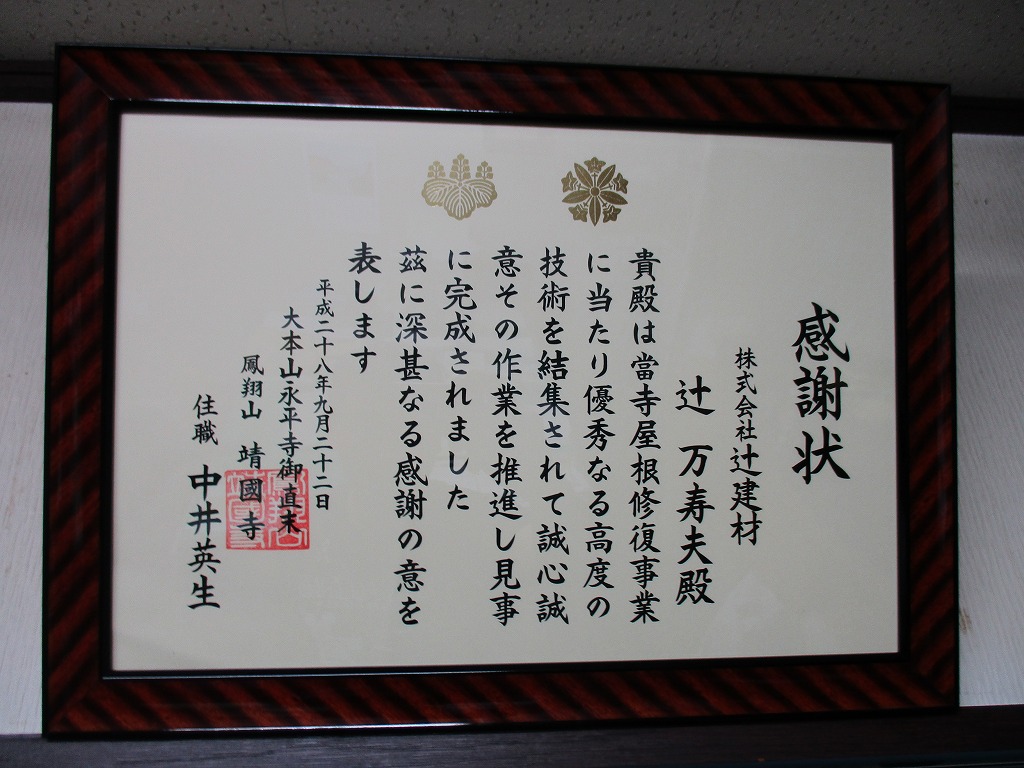 感謝状
株式会社辻建材
辻 万寿夫殿
貴殿は當寺屋根修復事業
に当たり優秀なる高度の
技術を結集されて誠心誠
意その作業を推進し見事
に完成されました
茲に深甚なる感謝の意を
表します
平成二十八年九月二十二日
大本山永平寺御直末
鳳翔山 靖國寺
住職 中井英生